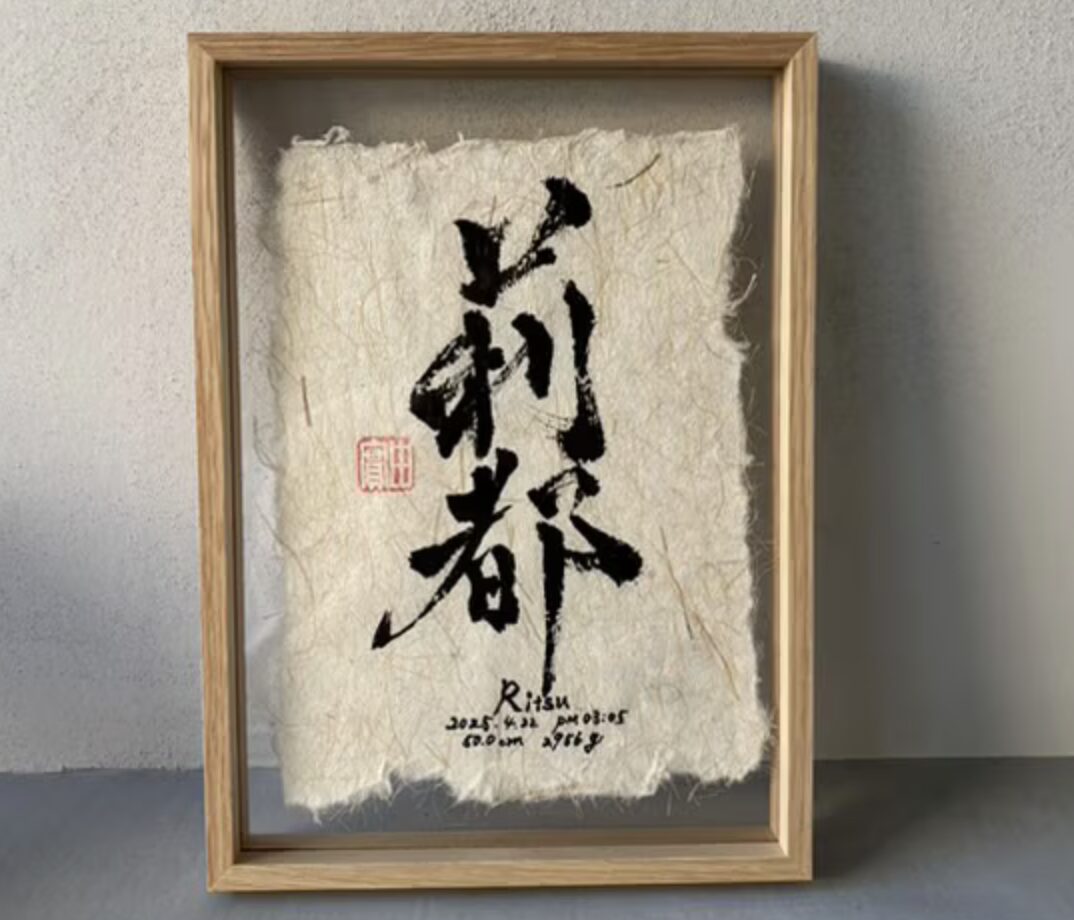 莉都
Ritsu
2025.4.22 PM 03:05
50.0cm 2956g